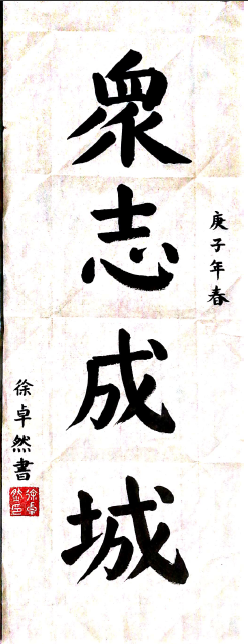 庚子年春
衆志成城
徐卓然書
徐卓
然印